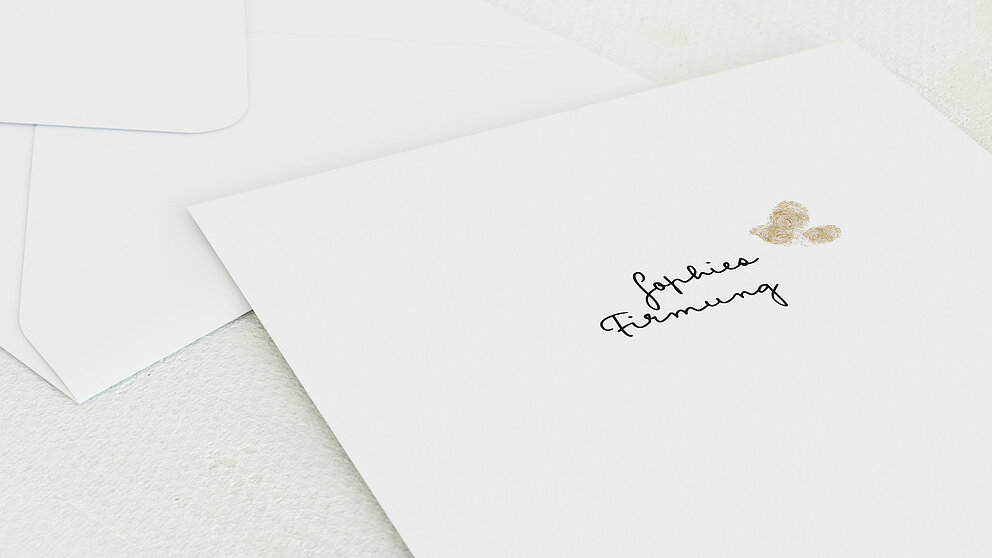 Sophies
Firmung